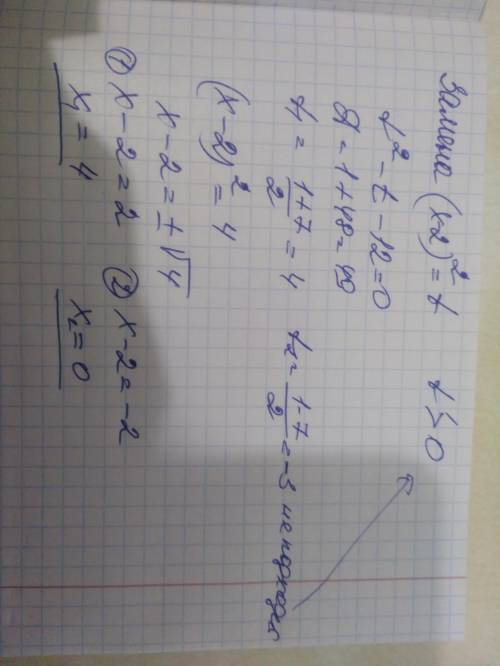 Замена (x-2)² = t   t ≥ 0
t² - t - 12 = 0
D = 1 + 48 = 49
t₁ = (1+7)/2 = 4   t₂ = (1-7)/2 = -3 не подходит
(x-2)² = 4
x - 2 = ±√4
① x - 2 = 2   ② x - 2 = -2
x₁ = 4   x₂ = 0